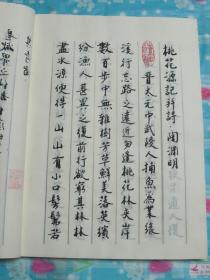 桃花源記并詩 陶渊明
晋太元中武陵人捕魚為業緣
溪行忘路之遠近忽逢桃花林夹岸
數百步中無雜樹芳草鲜美落英缤
纷漁人甚異之復前行欲窮其林林
盡水源便得一山山有小口髣髴若